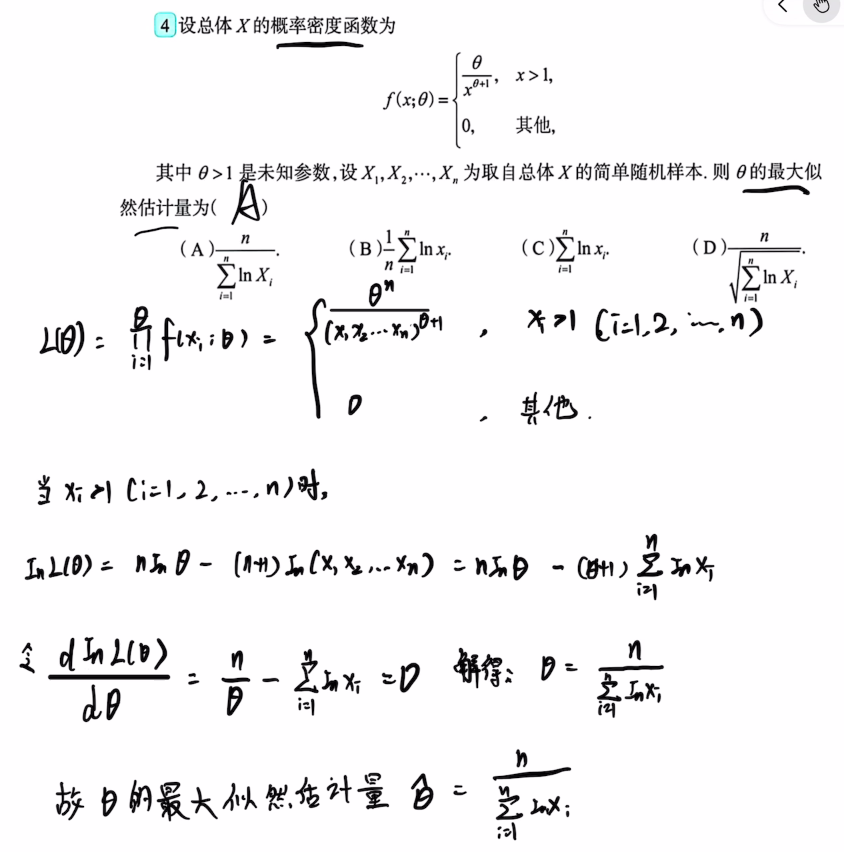 4 设总体 X 的概率密度函数为
f(x;θ)={ θ/x^{θ+1}, x>1,
0, 其他,
其中 θ>1 是未知参数,设 X₁,X₂,⋯,Xₙ 为取自总体 X 的简单随机样本. 则 θ 的最大似
然估计量为( A )
(A) n/∑_{i=1}^{n} ln X_i. (B) 1/n ∑_{i=1}^{n} ln x_i. (C) ∑_{i=1}^{n} ln x_i. (D) n/√(∑_{i=1}^{n} ln X_i).
L(θ) = ∏_{i=1}^{θ} f(x_i;θ) = { θ^n/(x₁x₂…xₙ)^{θ+1} , x_i>1 (i=1,2,…,n)
0 , 其他.
当 x_i>1 (i=1,2,…,n)时,
InL(θ) = nInθ - (n+1)In(x₁x₂…xₙ) = nInθ - (θ+1)∑_{i=1}^{n} Inx_i
令 dInL(θ)/dθ = n/θ - ∑_{i=1}^{n} Inx_i = 0 解得: θ = n/∑_{i=1}^{n} Inx_i
故 θ 的最大似然估计量 θ̂ = n/∑_{i=1}^{n} lnx_i